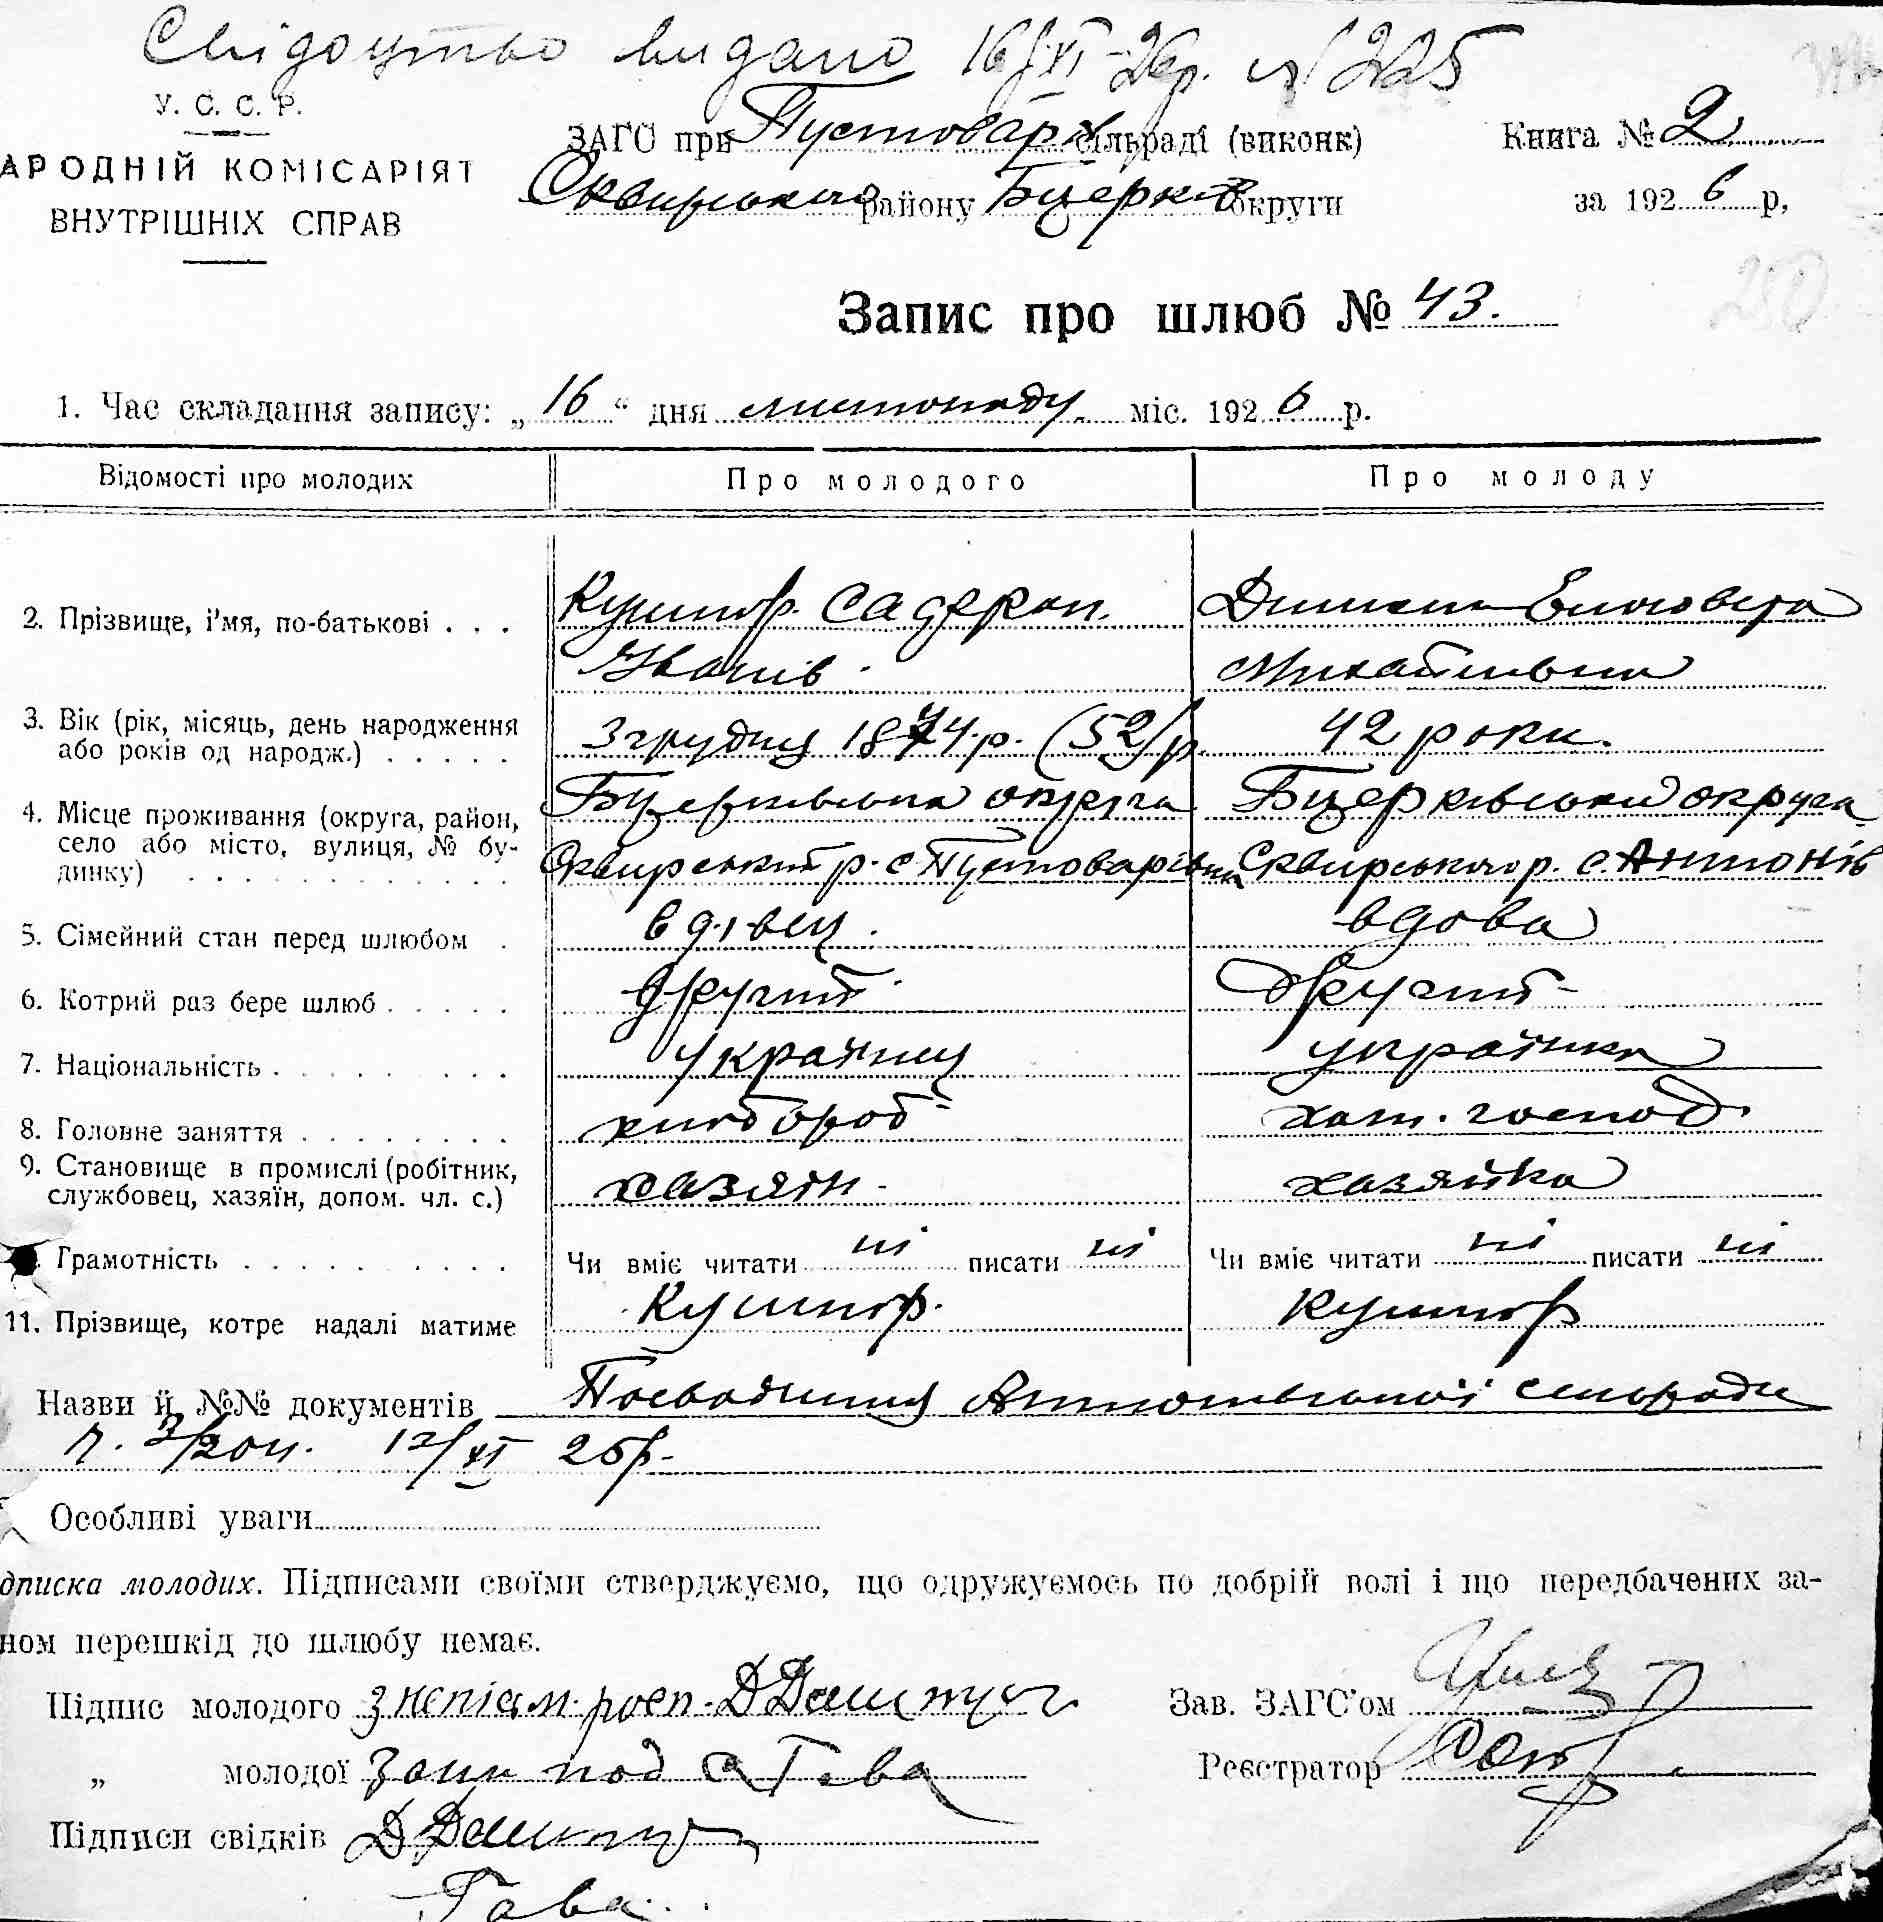 Свідоцтво видано 16/XI-26р. № 225
У. С. С. Р.
АРОДНІЙ КОМІСАРІЯТ
ВНУТРІШНІХ СПРАВ
ЗАГС при Пустовар сільраді (виконк)
Сквирського району Бцерків округи
Книга № 2
за 1926 р,
250
Запис про шлюб № 43.
1. Час складання запису: „16“ дня листопаду міс. 1926 р.
Відомості про молодих Про молодого Про молоду
2. Прізвище, і'мя, по-батькові . . . Кушнір Садфкоп. Єлизовета
Іванів. Михайлівна
3. Вік (рік, місяць, день народження
або років од народж.) . . . . . 3 грудня 1874.р. (52/р. 42 роки.
4. Місце проживання (округа, район,
село або місто, вулиця, № бу-
динку) . . . . . . . . . . .
Бцерківська округа Бцерківської округа
Сквирський р. с Пустоварівка Сквирського р. с. Антонів
5. Сімейний стан перед шлюбом . вдівец. вдова
6. Котрий раз бере шлюб . . . . . другий другий
7. Національність . . . . . . . . українец українка
8. Головне заняття . . . . . . . . хлібороб хат. господ.
9. Становище в промислі (робітник,
службовец, хазяїн, допом. чл. с.) хазяїн. хазяйка
Грамотність . . . . . . . . . . Чи вміє читати ні писати ні Чи вміє читати ні писати ні
11. Прізвище, котре надалі матиме Кушнір. Кушнір
Назви й №№ документів Посвідчення Антонівської сільради
12/XI 26р.
Особливі уваги
дписка молодих. Підписами своїми стверджуємо, що одружуємось по добрій волі і що передбачених за-
ном перешкід до шлюбу немає.
Підпис молодого з непісм. росп. Д
Зав. ЗАГС'ом
„ молодої за Гава
Реєстратор
Підписи свідків Д
Гава.